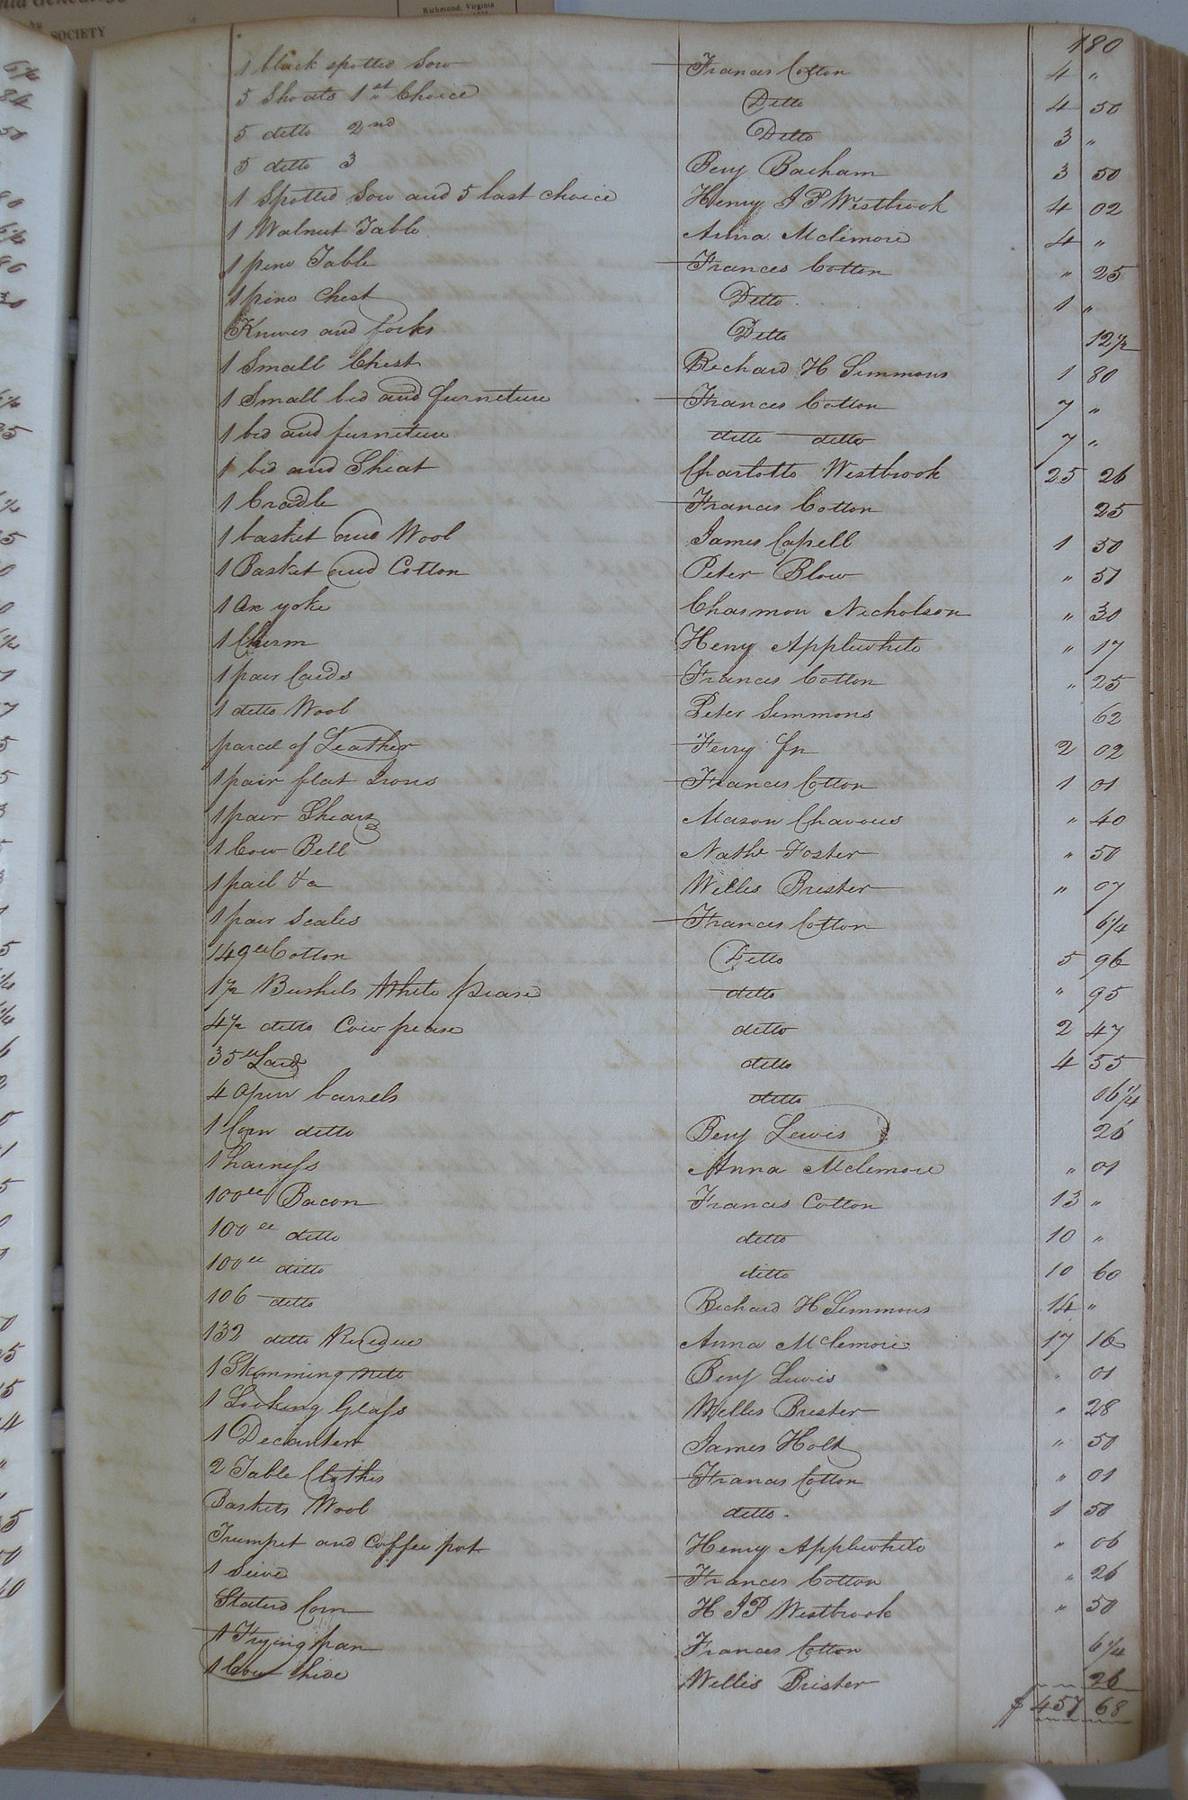 Richmond, Virginia
SOCIETY
180
1 black spotted Sow Frances Cotton 4 "
5 Shoats 1st Choice Ditto 4 50
5 ditto 2nd Ditto 3 "
5 ditto 3 Benj Barham 3 50
1 Spotted Sow and 5 last choice Henry J P Westbrook 4 02
1 Walnut Table Anna Mclemore 4 "
1 pine Table Frances Cotton " 25
1 pine Chest Ditto 1 "
Knives and forks Ditto 12 1/2
1 Small Chest Richard H Simmons 1 80
1 Small bed and furneture Frances Cotton 7 "
1 bed and furneture ditto ditto 7 "
1 bed and Sheat Charlotte Westbrook 25 26
1 Cradle Frances Cotton 25
1 basket and Wool James Capell 1 30
1 Basket and Cotton Peter Blow " 51
1 Ox yoke Charmon Nicholson " 30
1 Churm Henry Applewhite " 17
1 pair Cards Frances Cotton " 25
1 ditto Wool Peter Simmons 62
parcel of Leather Ferry Jn 2 02
1 pair flat Irons Frances Cotton 1 01
1 pair Shears Mason Chavous " 40
1 Cow Bell Nathl Foster " 50
1 pail &a Willis Brister " 07
1 pair Scales Frances Cotton 6 1/4
149 ll Cotton Ditto 5 96
1 1/2 Bushels White pease ditto " 95
4 1/2 ditto Cow pease ditto 2 47
35 ll Lard ditto 4 55
4 open barrels ditto 06 1/4
1 Corn ditto Benj Lewis 26
1 harness Anna Mclemore " 01
100 ll Bacon Frances Cotton 13 "
100 ll ditto ditto 10 "
100 ll ditto ditto 10 60
106 ditto Richard H Simmons 14 "
132 ditto Residue Anna Mclemore 17 16
1 Skimming nett Benj Lewis " 01
1 Looking Glass Willis Brister " 28
1 Decanter James Holt " 50
2 Table Clothes Frances Cotton " 01
Baskets Wool ditto 1 50
Trumpet and Coffee pot Henry Applewhite " 06
1 Seive Frances Cotton " 26
Corn H J P Westbrook " 50
1 Frying pan Frances Cotton 6 1/4
1 Cow hide Willis Brister 26
$ 457 68